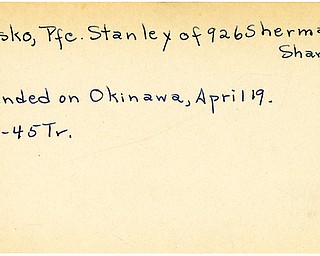 sko, Pfc. Stanley of 926 Sherma
Shar
nded on Okinawa, April 19.
-45 Tr.